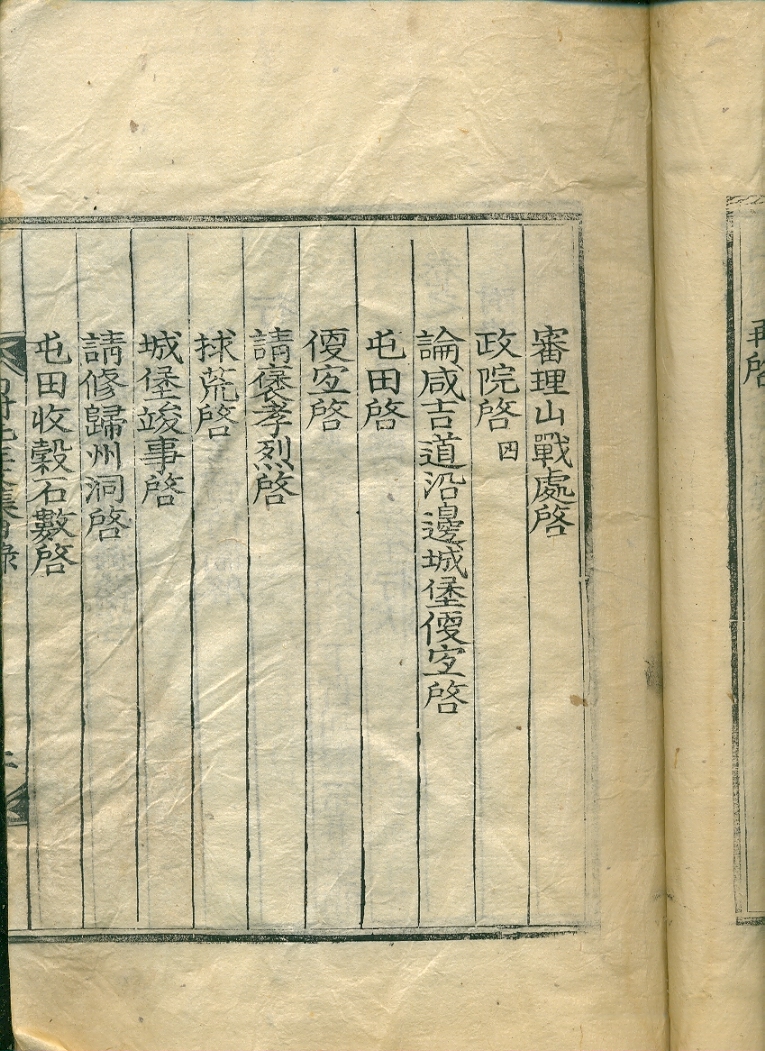 再啓
審理山戰處啓
政院啓 四
論咸吉道沿邊城堡便宜啓
屯田啓
便宜啓
請褒孝烈啓
捄荒啓
城堡竣事啓
請修歸州洞啓
屯田收穀石數啓